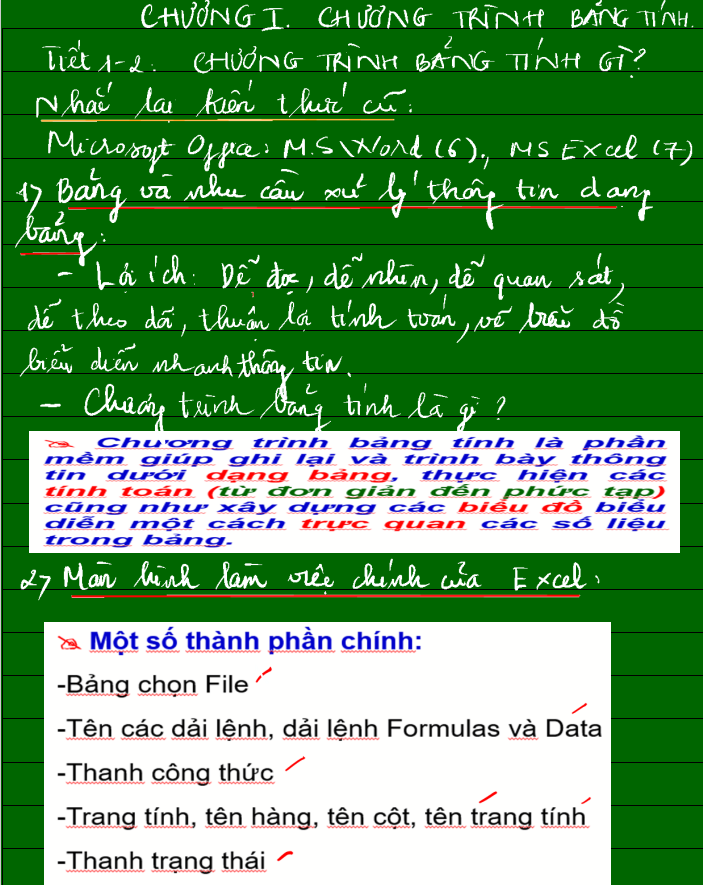 CHƯƠNG I. CHƯƠNG TRÌNH BẢNG TÍNH.
Tiết 1-2: CHƯƠNG TRÌNH BẢNG TÍNH GÌ?
Nhắc lại kiến thức cũ:
Microsoft Office: M.S\Word (6), MS Excel (7)
1) Bảng và nhu cầu xử lý thông tin dạng
bảng:
- Lợi ích: Dễ đọc, dễ nhìn, dễ quan sát,
dễ theo dõi, thuận lợi tính toán, vẽ biểu đồ
biểu diễn nhanh thông tin.
- Chương trình bảng tính là gì?
Chương trình bảng tính là phần
mềm giúp ghi lại và trình bày thông
tin dưới dạng bảng, thực hiện các
tính toán (từ đơn giản đến phức tạp)
cũng như xây dựng các biểu đồ biểu
diễn một cách trực quan các số liệu
trong bảng.
2) Màn hình làm việc chính của Excel:
Một số thành phần chính:
-Bảng chọn File
-Tên các dải lệnh, dải lệnh Formulas và Data
-Thanh công thức
-Trang tính, tên hàng, tên cột, tên trang tính
-Thanh trạng thái